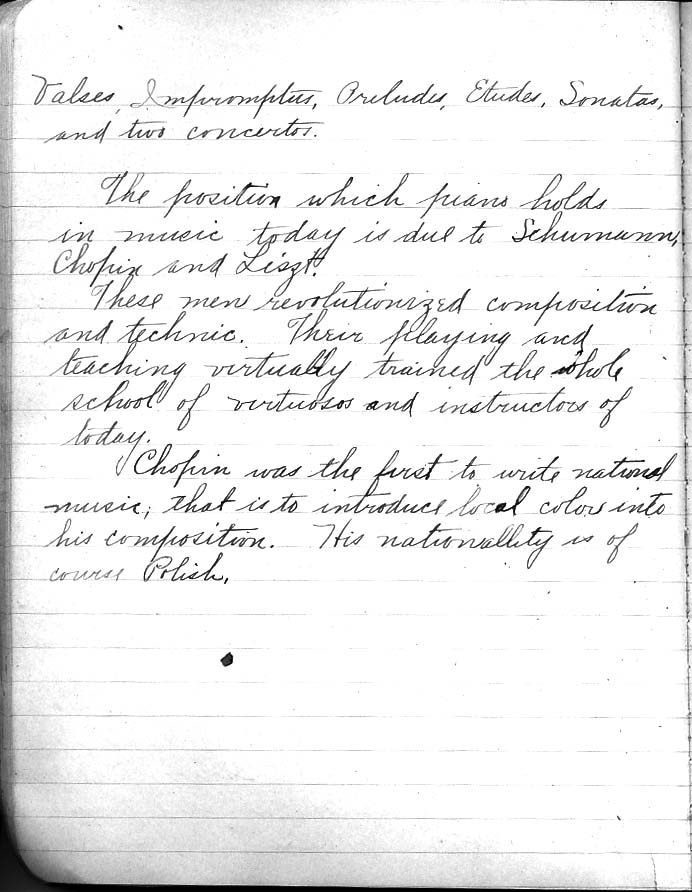 Valses, Impromptus, Preludes, Etudes, Sonatas,
and two concertos.
The position which piano holds
in music today is due to Schumann,
Chopin and Liszt.
These men revolutionized composition
and technic. Their playing and
teaching virtually trained the whole
school of virtuosos and instructors of
today.
Chopin was the first to write national
music; that is to introduce local color into
his composition. His nationallity is of
course Polish.